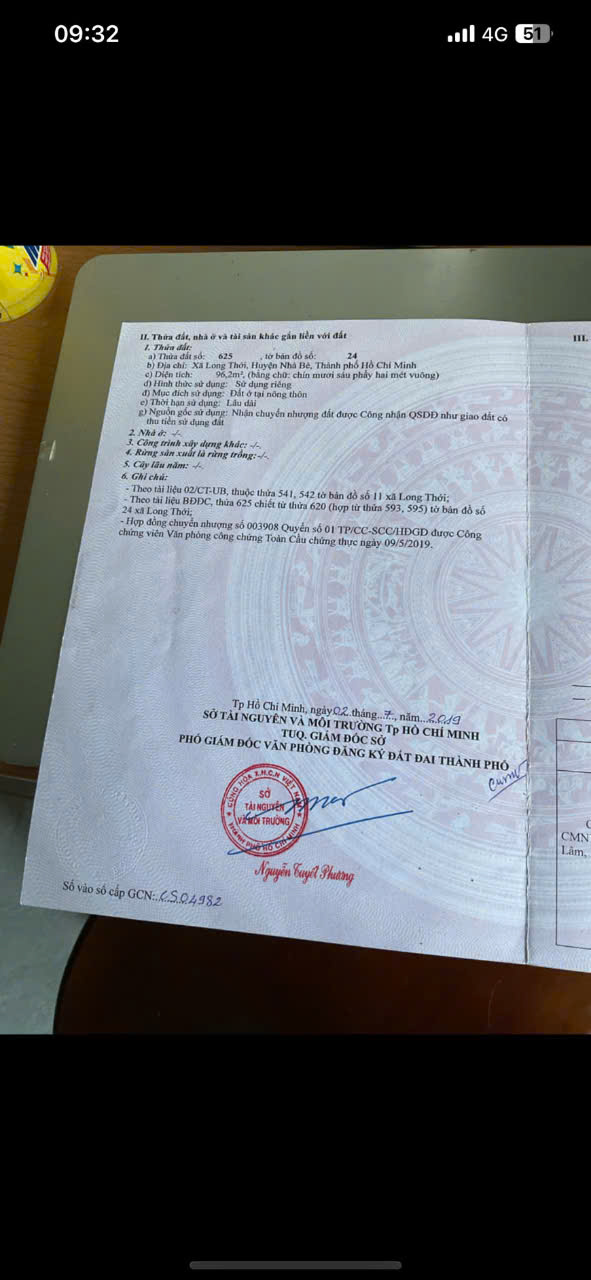 09:32
4G 51
II. Thửa đất, nhà ở và tài sản khác gắn liền với đất
III.
1. Thửa đất:
a) Thửa đất số: 625 , tờ bản đồ số: 24
b) Địa chỉ: Xã Long Thới, Huyện Nhà Bè, Thành phố Hồ Chí Minh
c) Diện tích: 96,2m², (bằng chữ: chín mươi sáu phẩy hai mét vuông)
d) Hình thức sử dụng: Sử dụng riêng
đ) Mục đích sử dụng: Đất ở tại nông thôn
e) Thời hạn sử dụng: Lâu dài
g) Nguồn gốc sử dụng: Nhận chuyển nhượng đất được Công nhận QSDĐ như giao đất có
thu tiền sử dụng đất
2. Nhà ở: -/-.
3. Công trình xây dựng khác: -/-.
4. Rừng sản xuất là rừng trồng: -/-.
5. Cây lâu năm: -/-.
6. Ghi chú:
- Theo tài liệu 02/CT-UB, thuộc thửa 541, 542 tờ bản đồ số 11 xã Long Thới;
- Theo tài liệu BĐĐC, thửa 625 chiết từ thửa 620 (hợp từ thửa 593, 595) tờ bản đồ số
24 xã Long Thới;
- Hợp đồng chuyển nhượng số 003908 Quyển số 01 TP/CC-SCC/HĐGD được Công
chứng viên Văn phòng công chứng Toàn Cầu chứng thực ngày 09/5/2019.
Tp Hồ Chí Minh, ngày 02 tháng 7 năm 2019
SỞ TÀI NGUYÊN VÀ MÔI TRƯỜNG Tp HỒ CHÍ MINH
TUQ. GIÁM ĐỐC SỞ
PHÓ GIÁM ĐỐC VĂN PHÒNG ĐĂNG KÝ ĐẤT ĐAI THÀNH PHỐ
CỘNG HÒA X.H.C.N VIỆT NAM
SỞ
TÀI NGUYÊN
VÀ MÔI TRƯỜNG
THÀNH PHỐ HỒ CHÍ MINH
Nguyễn Tuyết Phương
CMN
Lâm,
Số vào sổ cấp GCN: CS04982